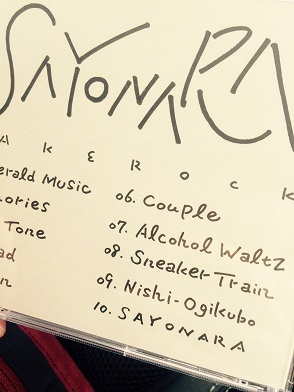 SAYONARA
AKEROCK
erald Music
ories
Tone
ad
n
06. Couple
07. Alcohol Waltz
08. Sneaker Train
09. Nishi-Ogikubo
10. SAYONARA